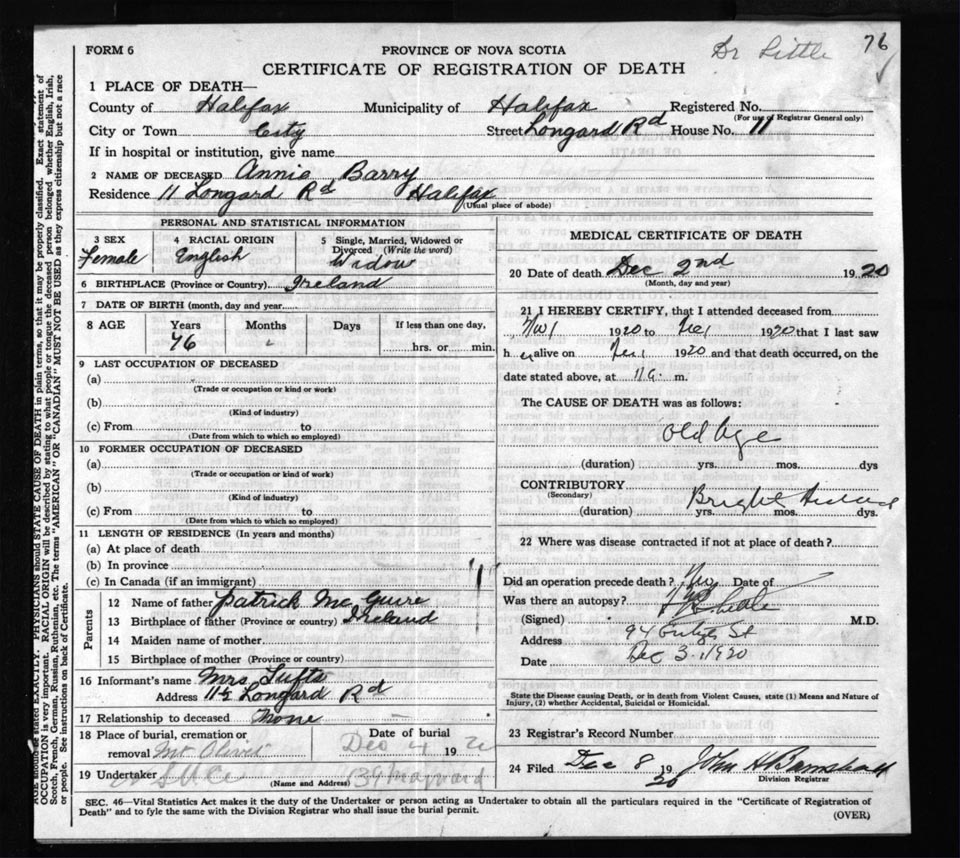 FORM 6
PROVINCE OF NOVA SCOTIA
Dr Little
76
CERTIFICATE OF REGISTRATION OF DEATH
1 PLACE OF DEATH—
County of Halifax Municipality of Halifax Registered No.
(For use of Registrar General only)
City or Town City Street Longard Rd House No. 11
If in hospital or institution, give name
2 NAME OF DECEASED Annie Barry
Residence 11 Longard Rd Halifax
(Usual place of abode)
PERSONAL AND STATISTICAL INFORMATION
3 SEX 4 RACIAL ORIGIN 5 Single, Married, Widowed or Divorced (Write the word)
Female English Widow
6 BIRTHPLACE (Province or Country) Ireland
7 DATE OF BIRTH (month, day and year)
8 AGE Years Months Days If less than one day,
76 hrs. or min.
9 LAST OCCUPATION OF DECEASED
(a)
(Trade or occupation or kind or work)
(b)
(Kind of industry)
(c) From to
(Date from which to which so employed)
10 FORMER OCCUPATION OF DECEASED
(a)
(Trade or occupation or kind of work)
(b)
(Kind of industry)
(c) From to
(Date from which to which so employed)
11 LENGTH OF RESIDENCE (In years and months)
(a) At place of death
(b) In province
(c) In Canada (if an immigrant)
Parents
12 Name of father Patrick Mc Guire
13 Birthplace of father (Province or country) Ireland
14 Maiden name of mother
15 Birthplace of mother (Province or country)
16 Informant's name Mrs Tufts
Address 11½ Longard Rd
17 Relationship to deceased None
18 Place of burial, cremation or removal Mt Olivet Date of burial Dec 4 1920
19 Undertaker
(Name and Address)
MEDICAL CERTIFICATE OF DEATH
20 Date of death Dec 2nd 1920
(Month, day and year)
21 I HEREBY CERTIFY, that I attended deceased from
Nov 1 1920 to Dec 1 1920 that I last saw
her alive on Dec 1 1920 and that death occurred, on the
date stated above, at m.
The CAUSE OF DEATH was as follows:
Old Age
(duration) yrs. mos. dys
CONTRIBUTORY Bright
(Secondary)
(duration) yrs. mos. dys.
22 Where was disease contracted if not at place of death?
Did an operation precede death? No Date of
Was there an autopsy? No
(Signed) Little M.D.
Address 94 St
Date Dec 3 1920
State the Disease causing Death, or in death from Violent Causes, state (1) Means and Nature of
Injury, (2) whether Accidental, Suicidal or Homicidal.
23 Registrar's Record Number
24 Filed Dec 8 1920 John H
Division Registrar
SEC. 46—Vital Statistics Act makes it the duty of the Undertaker or person acting as Undertaker to obtain all the particulars required in the "Certificate of Registration of
Death" and to fyle the same with the Division Registrar who shall issue the burial permit.
(OVER)
stated EXACTLY. PHYSICIANS should STATE CAUSE OF DEATH in plain terms, so that it may be properly classified. Exact statement of
OCCUPATION is very important. RACIAL ORIGIN will be described by stating to what people or tongue the deceased person belonged whether English, Irish,
Scotch, French, German, Russian, Ruthenian, etc. The terms "AMERICAN" OR "CANADIAN" MUST NOT BE USED as they express citizenship but not a race
or people. See instructions on back of Certificate.